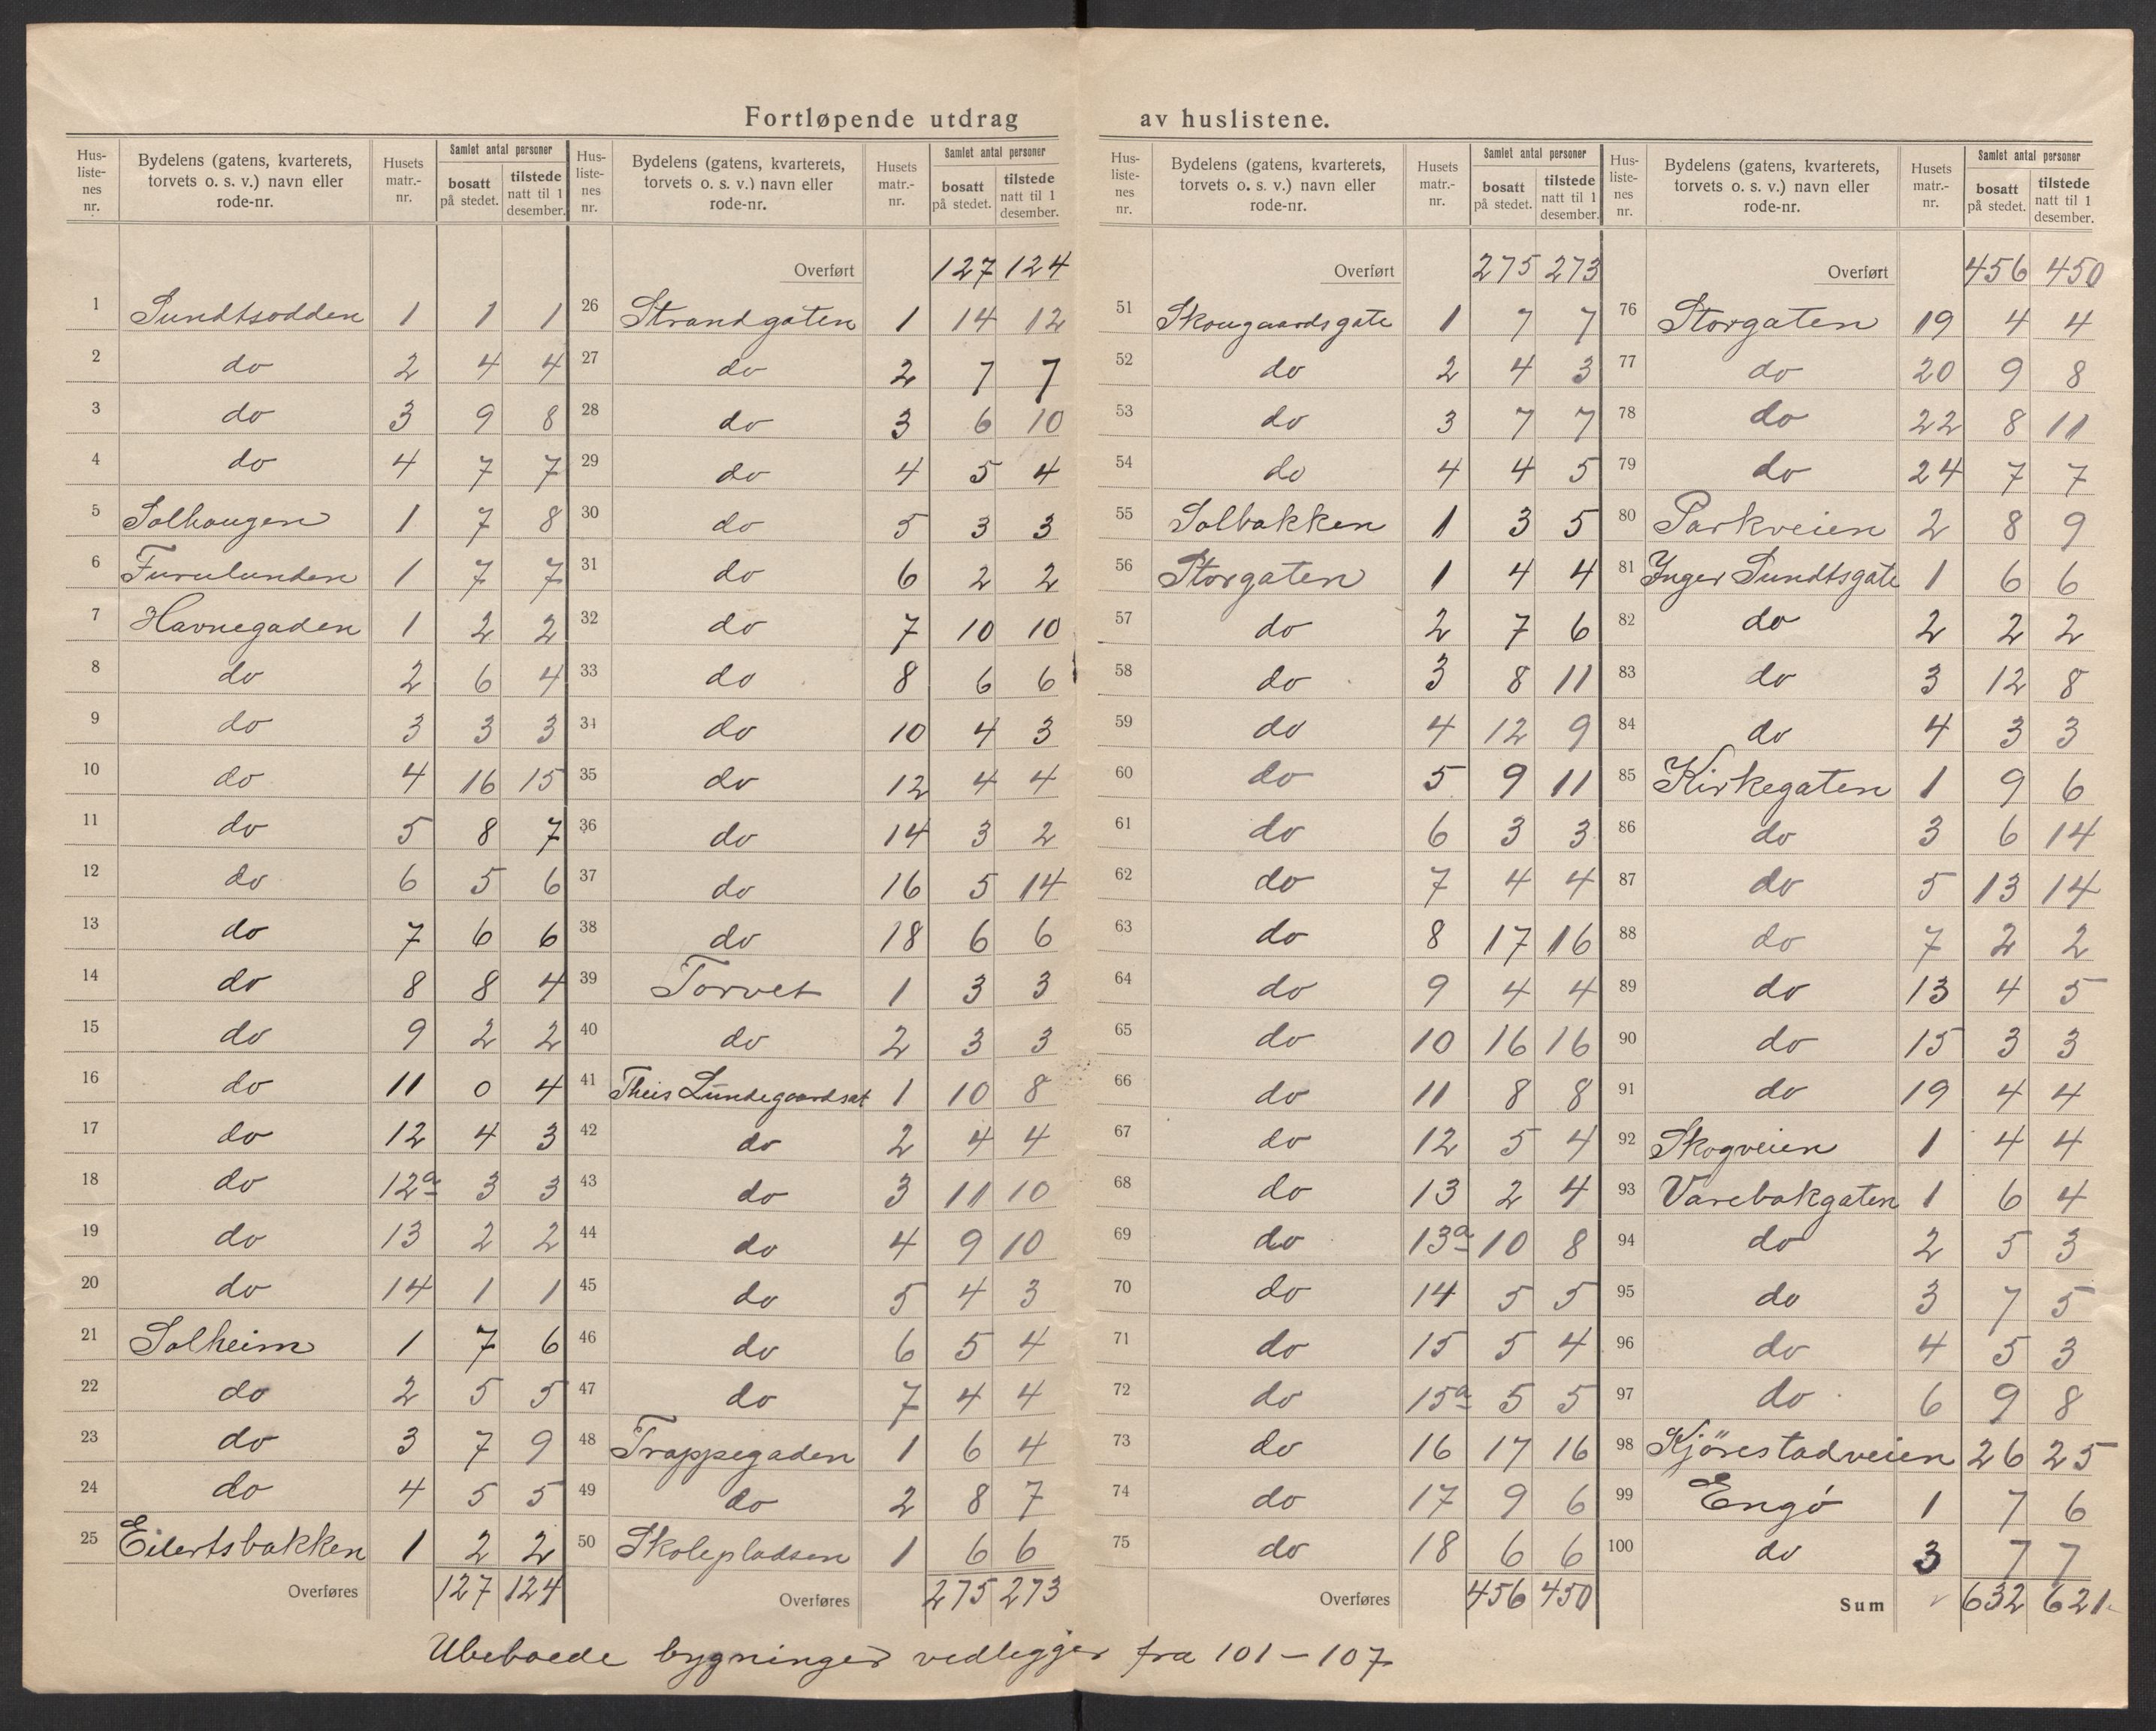 Fortløpende utdrag av huslistene.
Hus-liste-nes nr. | Bydelens (gatens, kvarterets, torvets o. s. v.) navn eller rode-nr. | Husets matr.-nr. | Samlet antal personer bosatt på stedet. | tilstede natt til 1 desember.
1 Sundtsodden 1 1 1
2 do 2 4 4
3 do 3 9 8
4 do 4 7 7
5 Solhaugen 1 7 8
6 Furulunden 1 7 7
7 Havnegaden 1 2 2
8 do 2 6 4
9 do 3 3 3
10 do 4 16 15
11 do 5 8 7
12 do 6 5 6
13 do 7 6 6
14 do 8 8 4
15 do 9 2 2
16 do 11 0 4
17 do 12 4 3
18 do 12a 3 3
19 do 13 2 2
20 do 14 1 1
21 Solheim 1 7 6
22 do 2 5 5
23 do 3 7 9
24 do 4 5 5
25 Eilertsbakken 1 2 2
Overføres 127 124
Hus-liste-nes nr. | Bydelens (gatens, kvarterets, torvets o. s. v.) navn eller rode-nr. | Husets matr.-nr. | Samlet antal personer bosatt på stedet. | tilstede natt til 1 desember.
Overført 127 124
26 Strandgaten 1 14 12
27 do 2 7 7
28 do 3 6 10
29 do 4 5 4
30 do 5 3 3
31 do 6 2 2
32 do 7 10 10
33 do 8 6 6
34 do 10 4 3
35 do 12 4 4
36 do 14 3 2
37 do 16 5 14
38 do 18 6 6
39 Torvet 1 3 3
40 do 2 3 3
41 Theis Lundegaardsgt 1 10 8
42 do 2 4 4
43 do 3 11 10
44 do 4 9 10
45 do 5 4 3
46 do 6 5 4
47 do 7 4 4
48 Trappegaden 1 6 4
49 do 2 8 7
50 Skolepladsen 1 6 6
Overføres 275 273
Hus-liste-nes nr. | Bydelens (gatens, kvarterets, torvets o. s. v.) navn eller rode-nr. | Husets matr.-nr. | Samlet antal personer bosatt på stedet. | tilstede natt til 1 desember.
Overført 275 273
51 Skougaardsgate 1 7 7
52 do 2 4 3
53 do 3 7 7
54 do 4 4 5
55 Solbakken 1 3 5
56 Storgaten 1 4 4
57 do 2 7 6
58 do 3 8 11
59 do 4 12 9
60 do 5 9 11
61 do 6 3 3
62 do 7 4 4
63 do 8 17 16
64 do 9 4 4
65 do 10 16 16
66 do 11 8 8
67 do 12 5 4
68 do 13 2 4
69 do 13a 10 8
70 do 14 5 5
71 do 15 5 4
72 do 15a 5 5
73 do 16 17 16
74 do 17 9 6
75 do 18 6 6
Overføres 456 450
Hus-liste-nes nr. | Bydelens (gatens, kvarterets, torvets o. s. v.) navn eller rode-nr. | Husets matr.-nr. | Samlet antal personer bosatt på stedet. | tilstede natt til 1 desember.
Overført 456 450
76 Storgaten 19 4 4
77 do 20 9 8
78 do 22 8 11
79 do 24 7 7
80 Parkveien 2 8 9
81 Inger Sundtsgate 1 6 6
82 do 2 2 2
83 do 3 12 8
84 do 4 3 3
85 Kirkegaten 1 9 6
86 do 3 6 14
87 do 5 13 14
88 do 7 2 2
89 do 13 4 5
90 do 15 3 3
91 do 19 4 4
92 Skogveien 1 4 4
93 Varebakgaten 1 6 4
94 do 2 5 3
95 do 3 7 5
96 do 4 5 3
97 do 6 9 8
98 Kjørestadveien 26 25
99 Engø 1 7 6
100 do 3 7 7
Sum 632 621
Ubeboede bygninger vedlegges fra 101 – 107